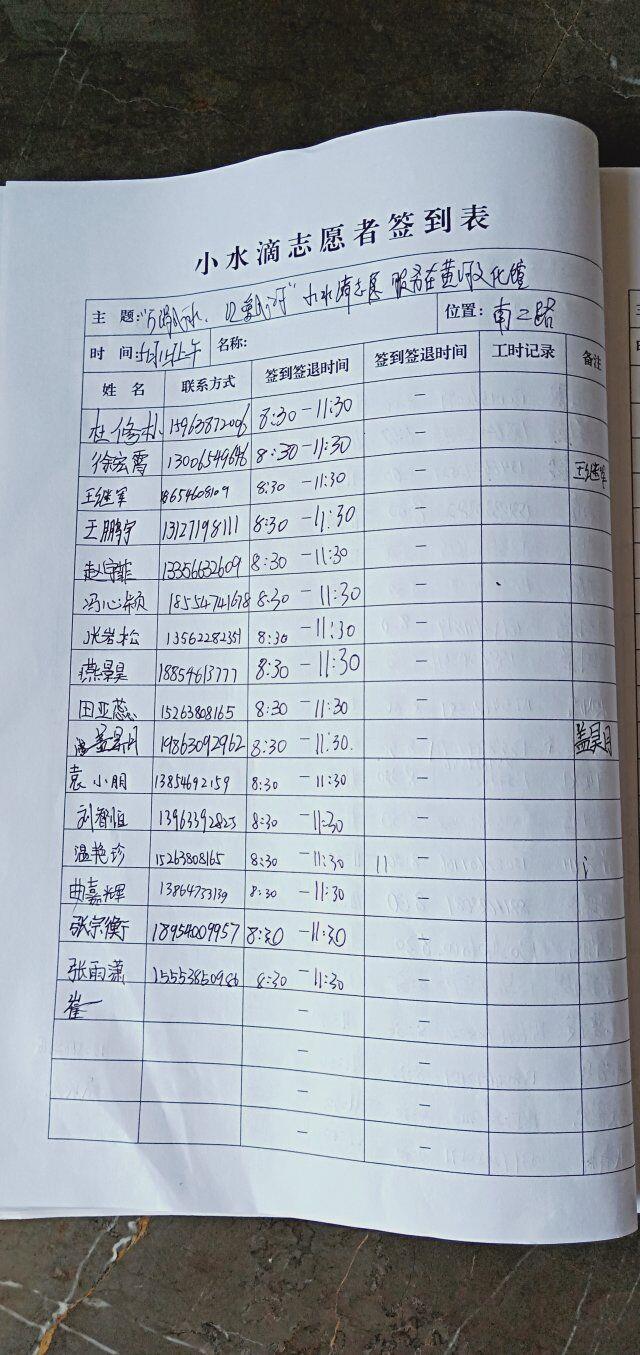 小水滴志愿者签到表
主 题: 小水滴志愿 服务在黄河文化馆 位置: 南二路
时 间: 上午 名称:
姓 名 联系方式 签到签退时间 签到签退时间 工时记录 备注
杜修林 15963872006 8:30 -11:30 -
徐宏霄 13006549646 8:30 -11:30 -
王继军 18654608109 8:30 -11:30 - 王继军
王鹏宇 13127198111 8:30 -11:30 -
赵宇菲 13356632609 8:30 -11:30 -
冯心颖 18554741678 8:30 -11:30 -
张岩松 13562282351 8:30 -11:30 -
燕景昊 18854613777 8:30 -11:30 -
田亚蕊 15263808165 8:30 -11:30 -
盖昊月 19863092962 8:30 -11:30 - 盖昊月
袁小朋 13854692159 8:30 -11:30 -
刘智恒 13963392825 8:30 -11:30 -
温艳珍 15263808165 8:30 -11:30 11 -
曲嘉辉 13864753139 8:30 -11:30 -
张宗衡 18954009957 8:30 -11:30 -
张雨潇 15553850986 8:30 -11:30 -
崔一 - -
- -
- -
- -